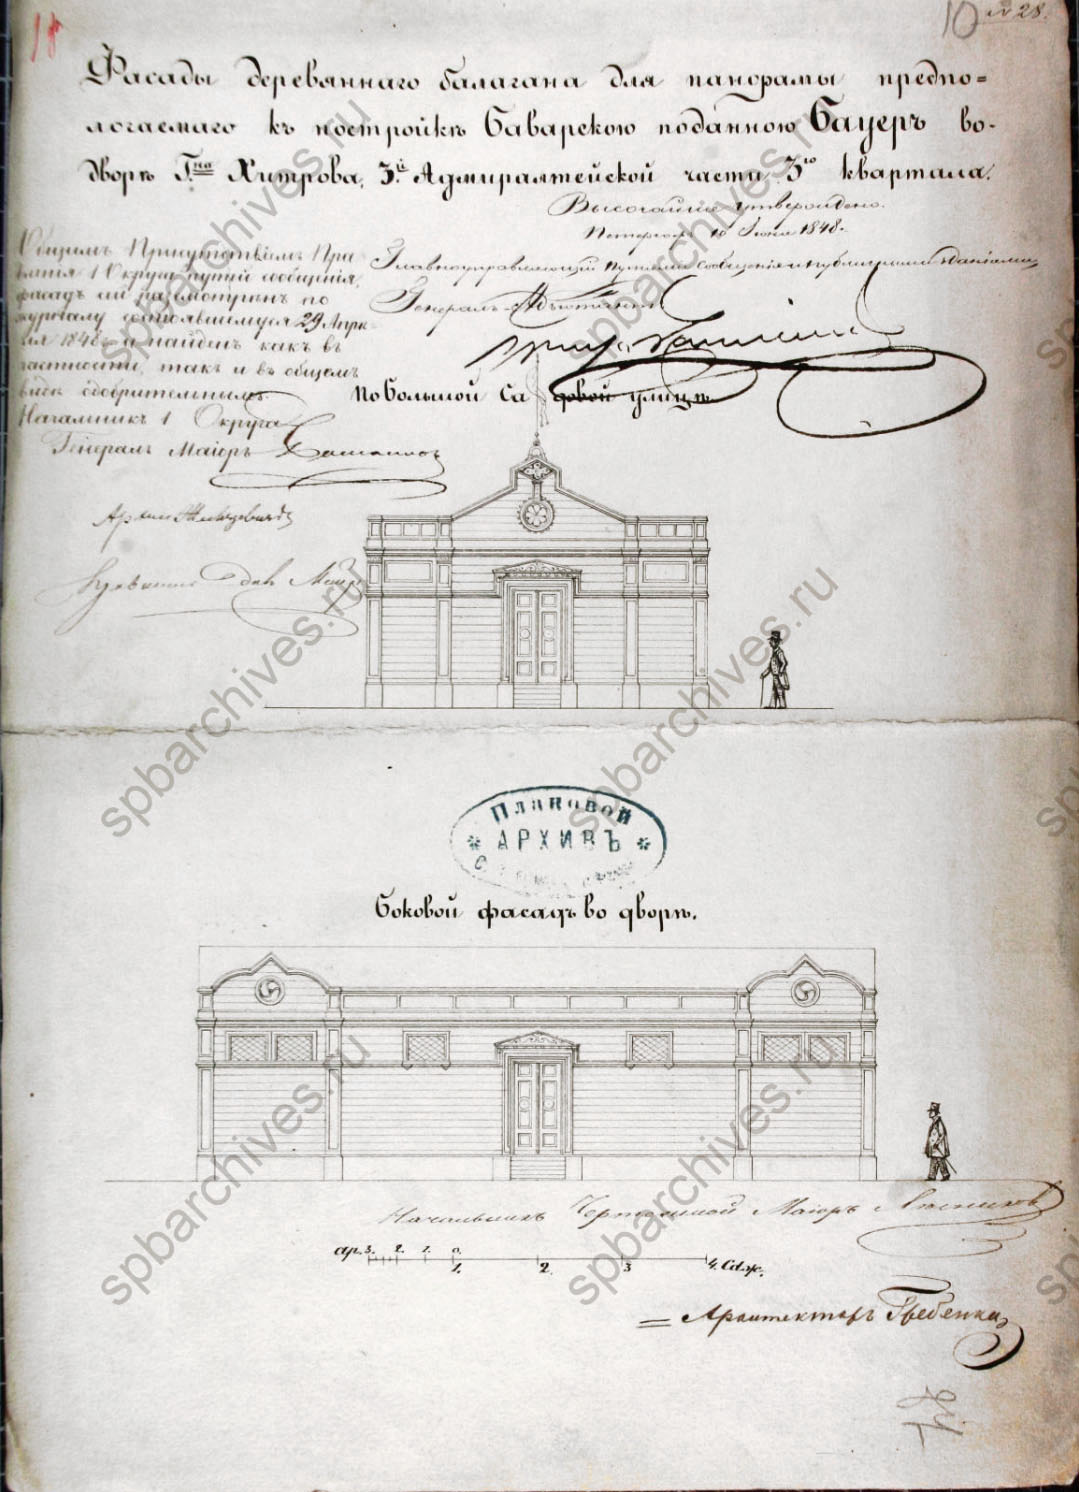 10 № 28.
Фасады деревяннаго балагана для панорамы предпо=
логаемаго къ постройкѣ Баварскою поданною Бауеръ во-
дворѣ Г.на Хитрова, 3.й Адмиралтейской части 3.го квартала.
Высочайше утверждено.
Петергофъ 10 Іюня 1848.
Главноуправляющій Путями Сообщенія и публичными зданіями
Генералъ-Адъютантъ
Общимъ Присутствіемъ Пра-
вленія 1 Округа путей сообщенія,
фасадъ сей разсмотрѣнъ по
журналу состоявшемуся 29 Апрѣ-
ля 1848 и найденъ какъ въ
частности, такъ и въ общемъ
видѣ одобрительнымъ.
Начальникъ 1 Округа
Генералъ Маіоръ
По Большой Садовой улицѣ
Плановой
АРХИВЪ
Боковой фасадъ во дворѣ.
Начальникъ Чертежной Маіоръ
ар. 3. 2. 1. 0. 1. 2. 3 4. Саж.
Архитекторъ Гребенка
spbarchives.ru
spbarchives.ru
spbarchives.ru
spbarchives.ru
spbarchives.ru
spbarchives.ru